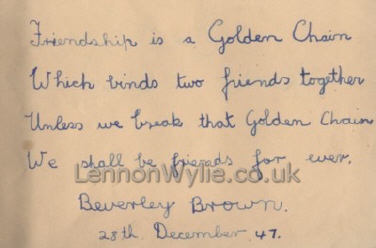 Friendship is a Golden Chain
Which binds two friends together
Unless we break that Golden Chain
We shall be friends for ever.
LennonWylie.co.uk
Beverley Brown.
28th December 47.